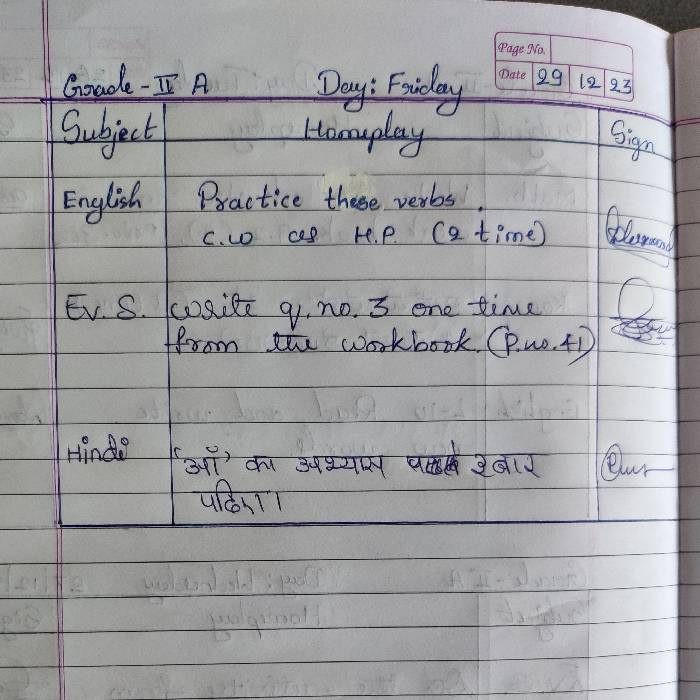 Page No.
Date 29 12 23
Grade - II A Day: Friday
Subject Homeplay Sign
English Practice these verbs.
C.W as H.P. (2 time)
Ev. S. Write q. no. 3 one time
from the workbook. (P. no. 41)
Hindi 'ऑ' का अभ्यास २ बार
पढिए।